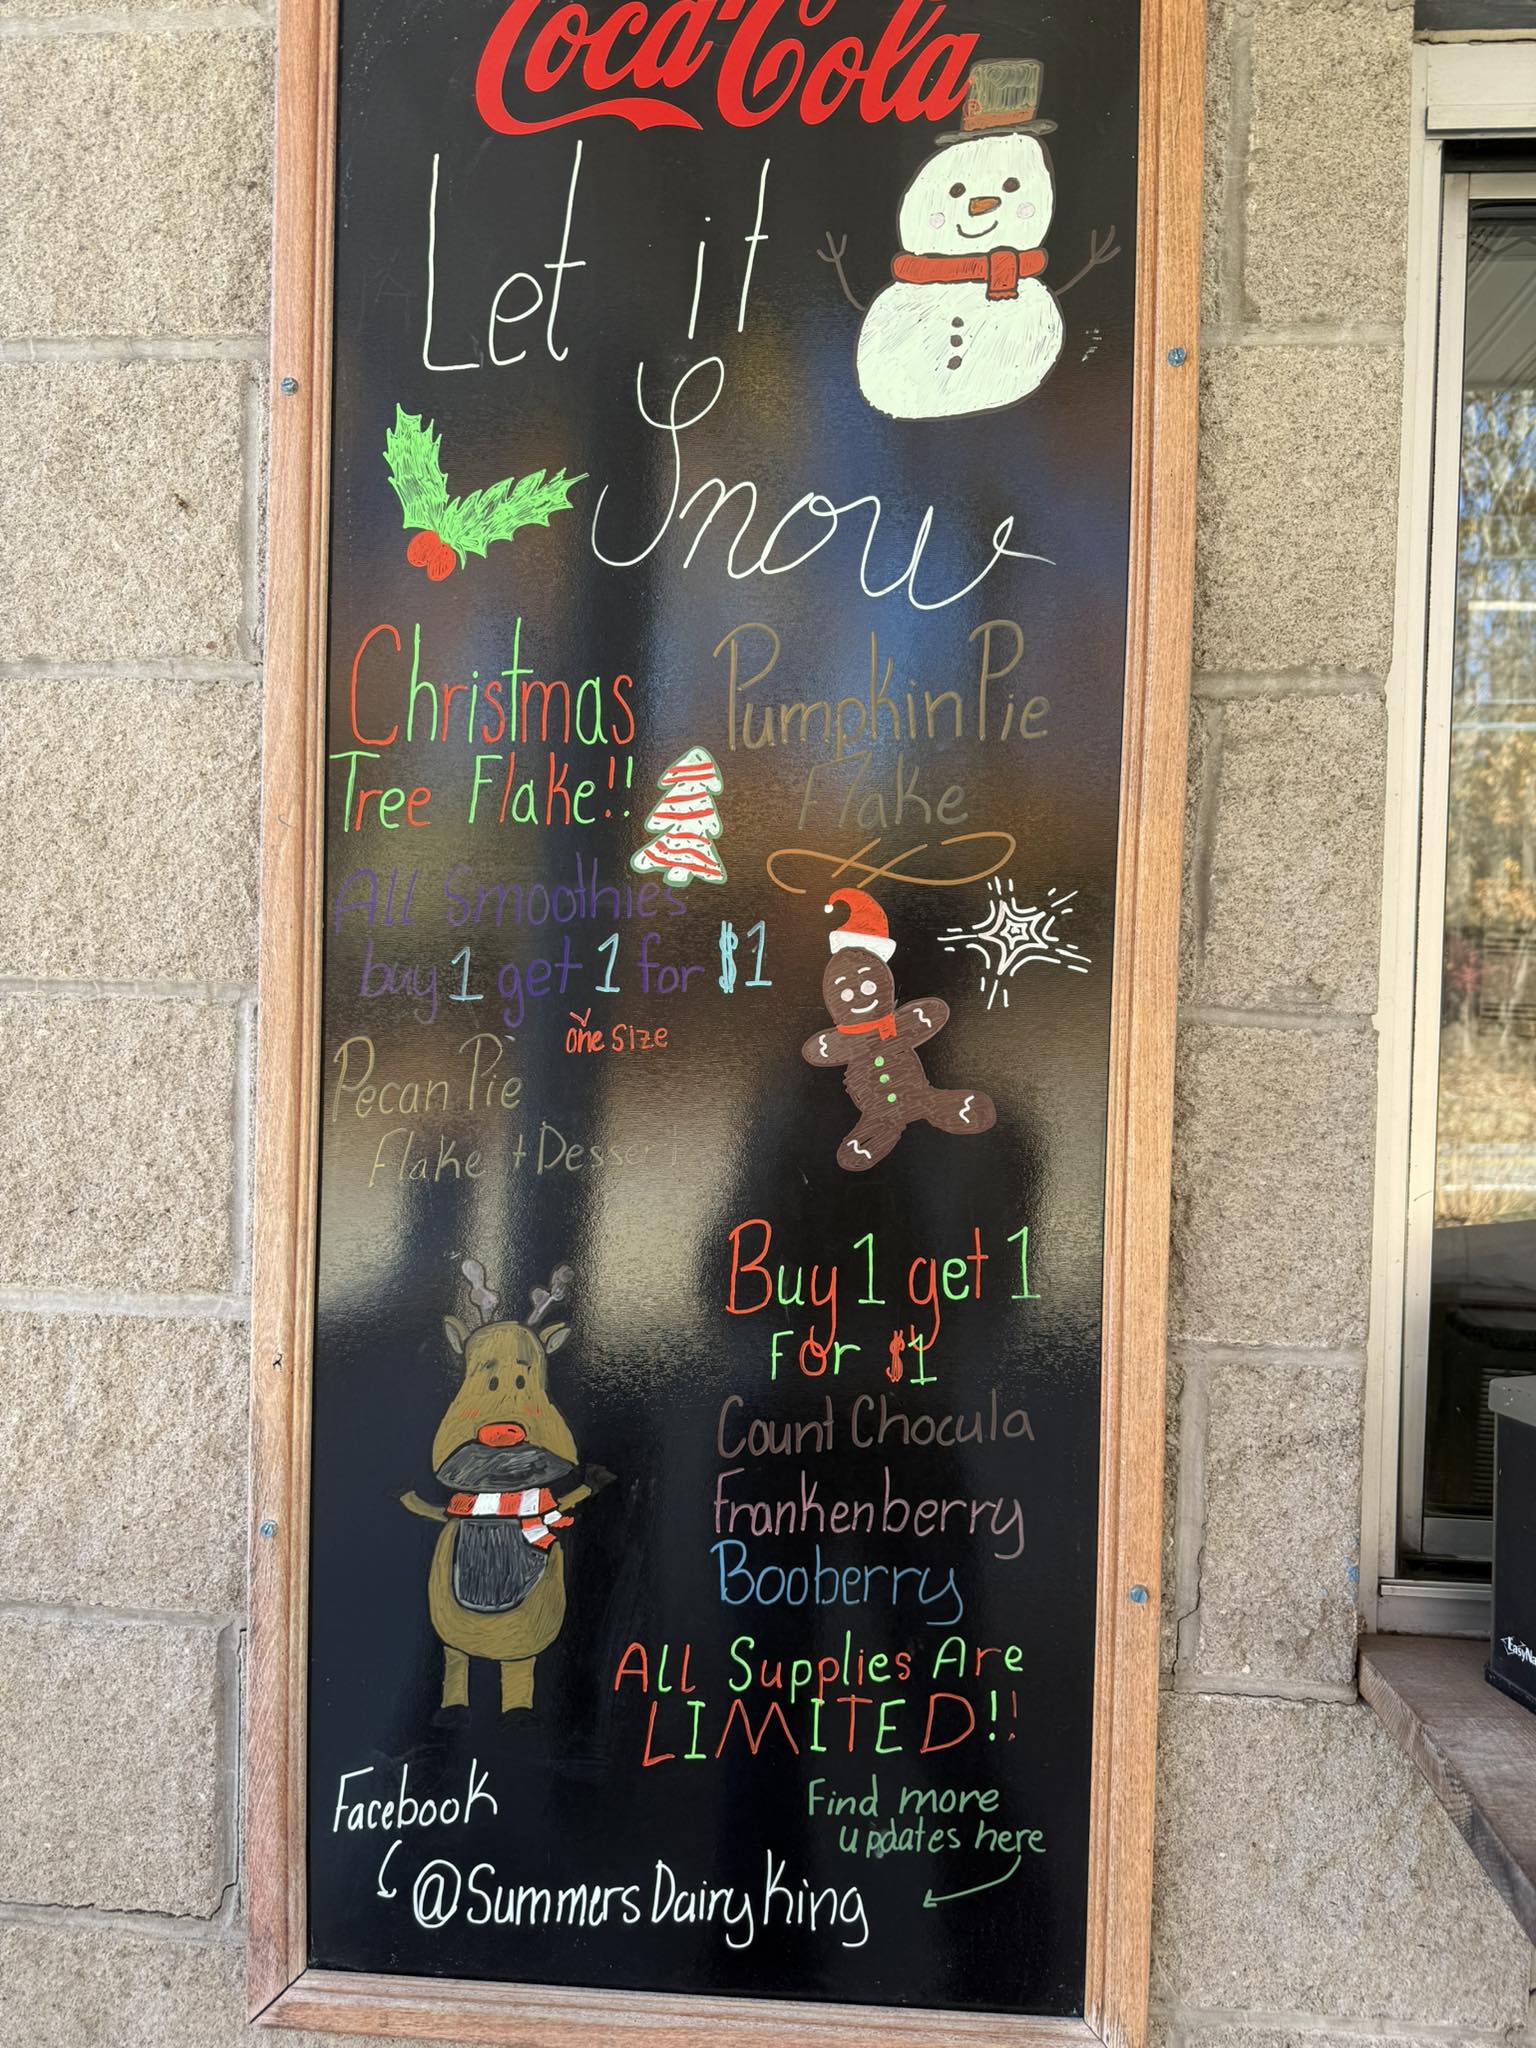 Coca-Cola
Let it
Snow
Christmas
Tree Flake!!
Pumpkin Pie
Flake
All Smoothies
buy 1 get 1 for $1
one size
Pecan Pie
Flake + Dessert
Buy 1 get 1
For $1
Count Chocula
Frankenberry
Booberry
All Supplies Are
LIMITED!!
Facebook
@SummersDairyKing
Find more
updates here